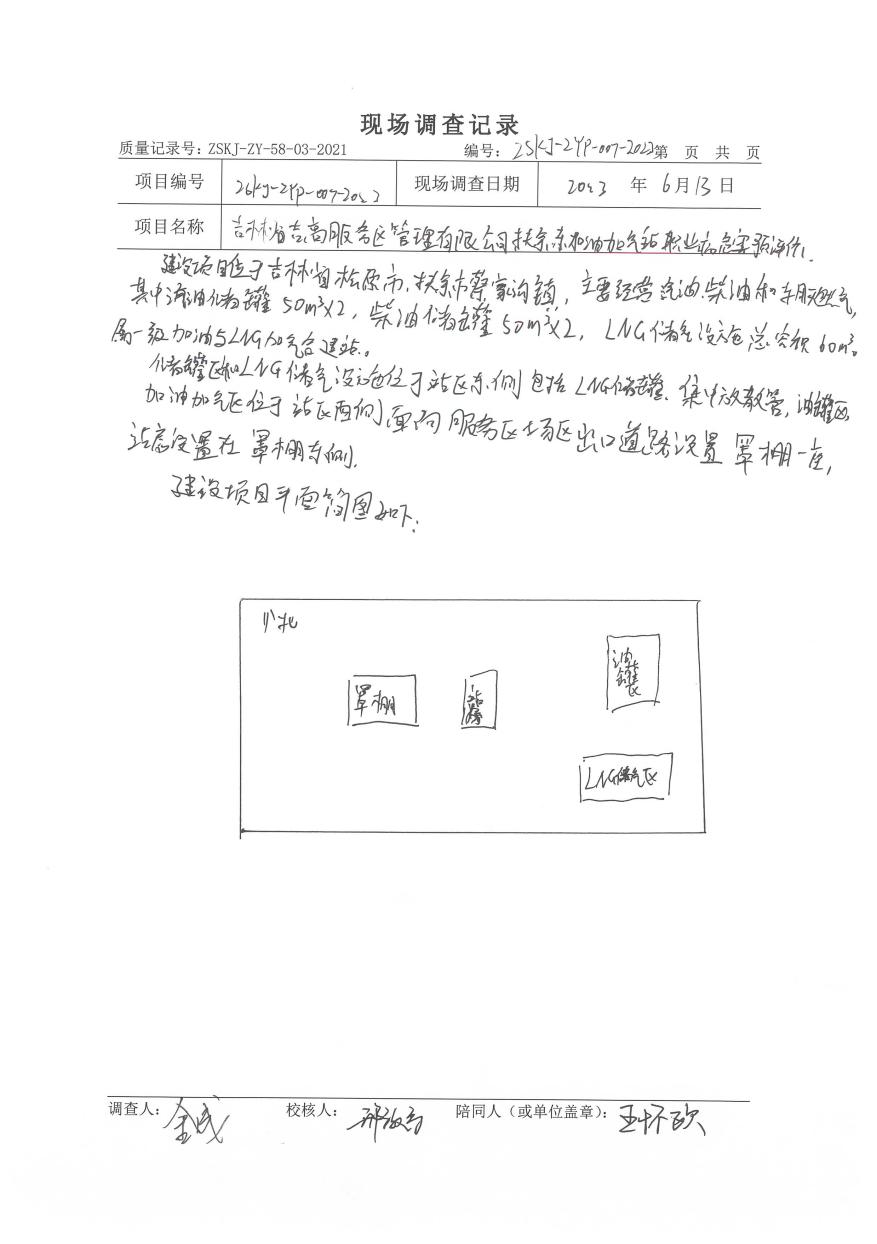 现场调查记录
质量记录号：ZSKJ-ZY-58-03-2021 编号：ZSKJ-ZYP-007-2023第 页 共 页
项目编号 ZSKJ-ZYP-007-2023 现场调查日期 2023 年 6月13日
项目名称 吉林省吉高服务区管理有限公司扶余东加油加气站职业病危害预评价
建设项目位于吉林省松原市，扶余市蔡家沟镇，主要经营汽油、柴油和车用天然气，
其中汽油储罐 50m³×2，柴油储罐 50m³×2，LNG储气设施总容积 60m³。
属一级加油与LNG加气合建站。
储罐区和LNG储气设施位于站区东侧 包括 LNG储罐、集中放散管，油罐区
加油加气区位于站区西侧 面向服务区场区出口道路设置 罩棚一座，
站房设置在 罩棚东侧。
建设项目平面简图如下：
北
油罐区
罩棚 站房
LNG储气区
调查人： 校核人： 陪同人（或单位盖章）：王怀欧